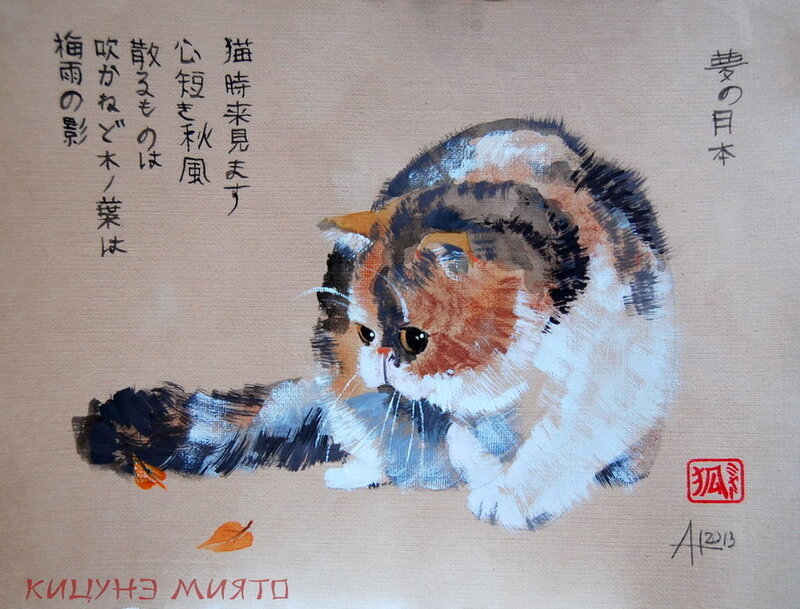 夢の日本
猫時来見ます
心短き秋風
散るものは
吹かねど木ノ葉は
梅雨の影
狐
AK2013
КИЦУНЭ МИЯТО